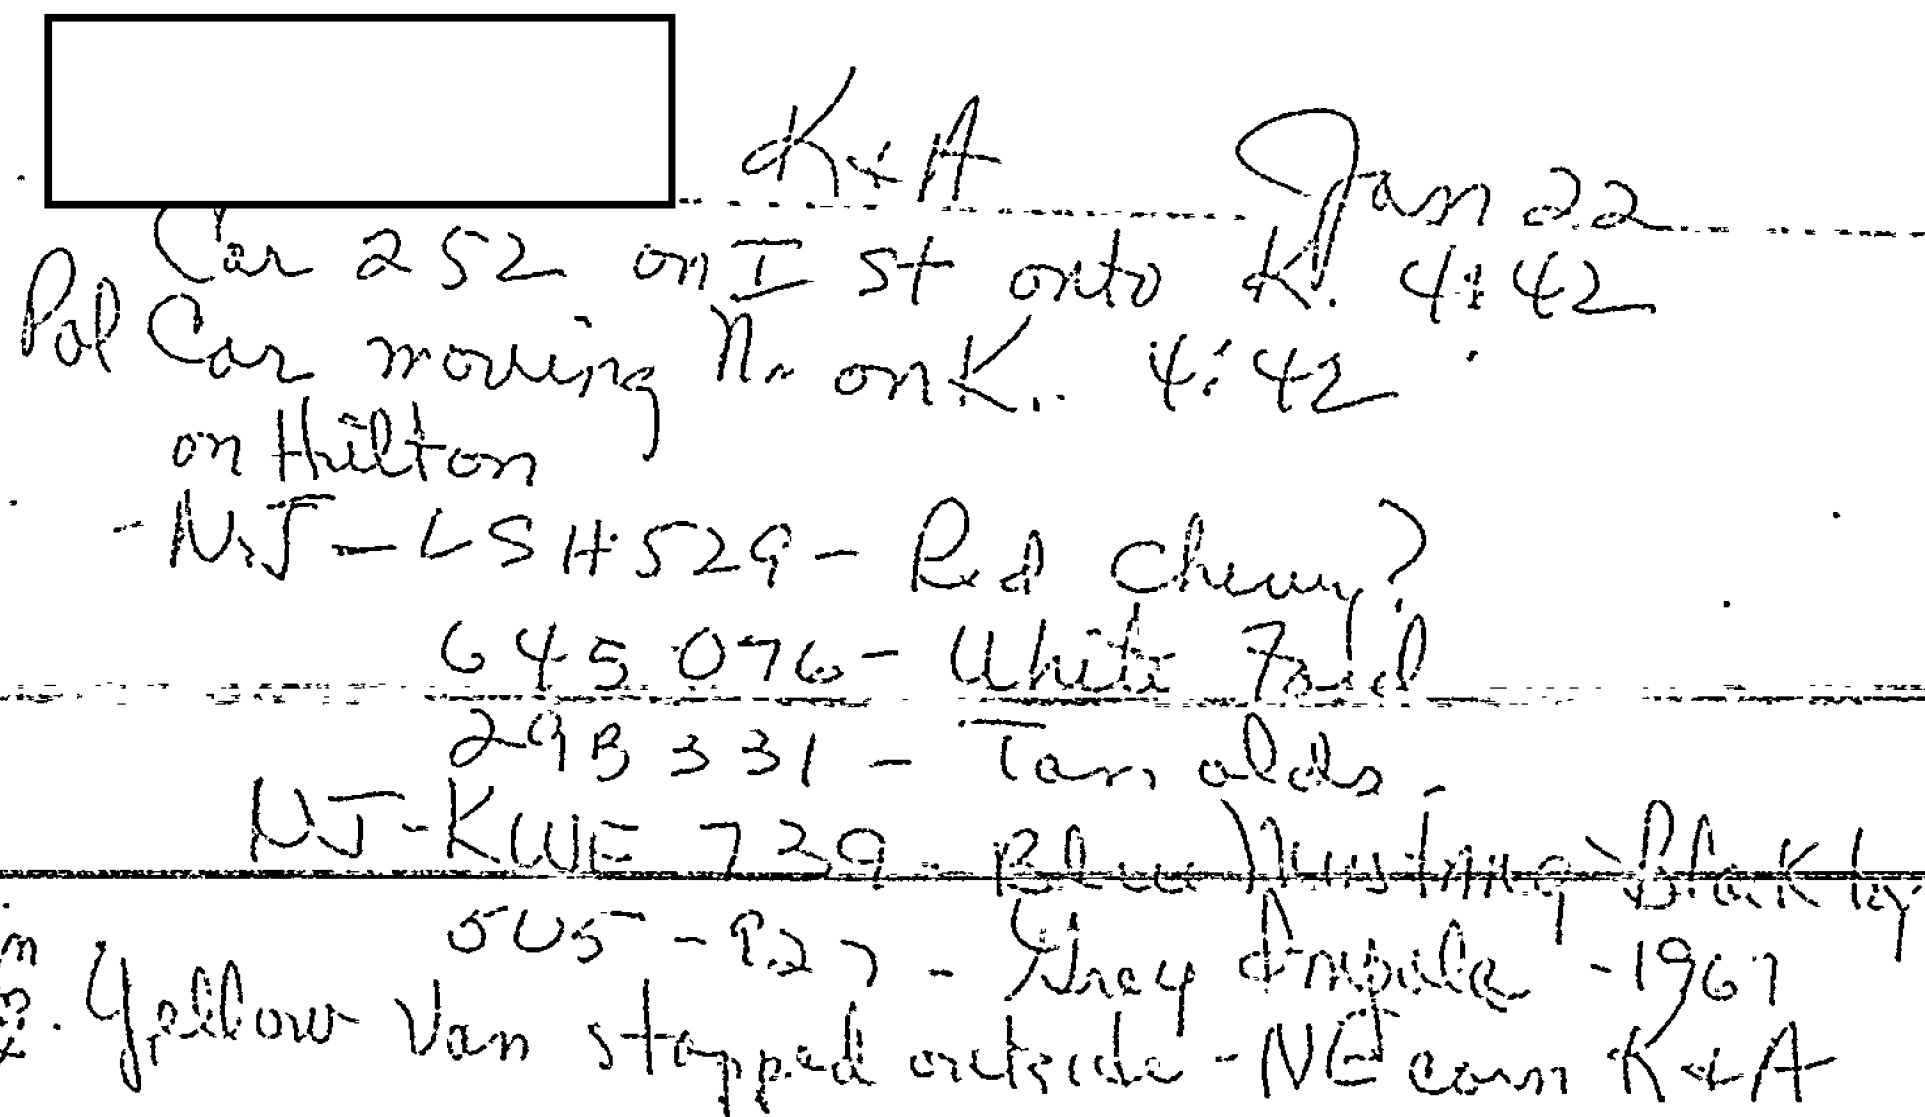 K + A Jan 22
Car 252 on I St onto K. 4:42
Pol Car moving N. on K. 4:42
on Hilton
- N.J - LSH529 - Red Chevy?
645 076 - White Ford
29B 331 - Tan olds.
NJ-KWE 739 - Blue Mustang - Black
505 - 927 - Gray Impala - 1967
Yellow Van stopped outside - NE corn K+A